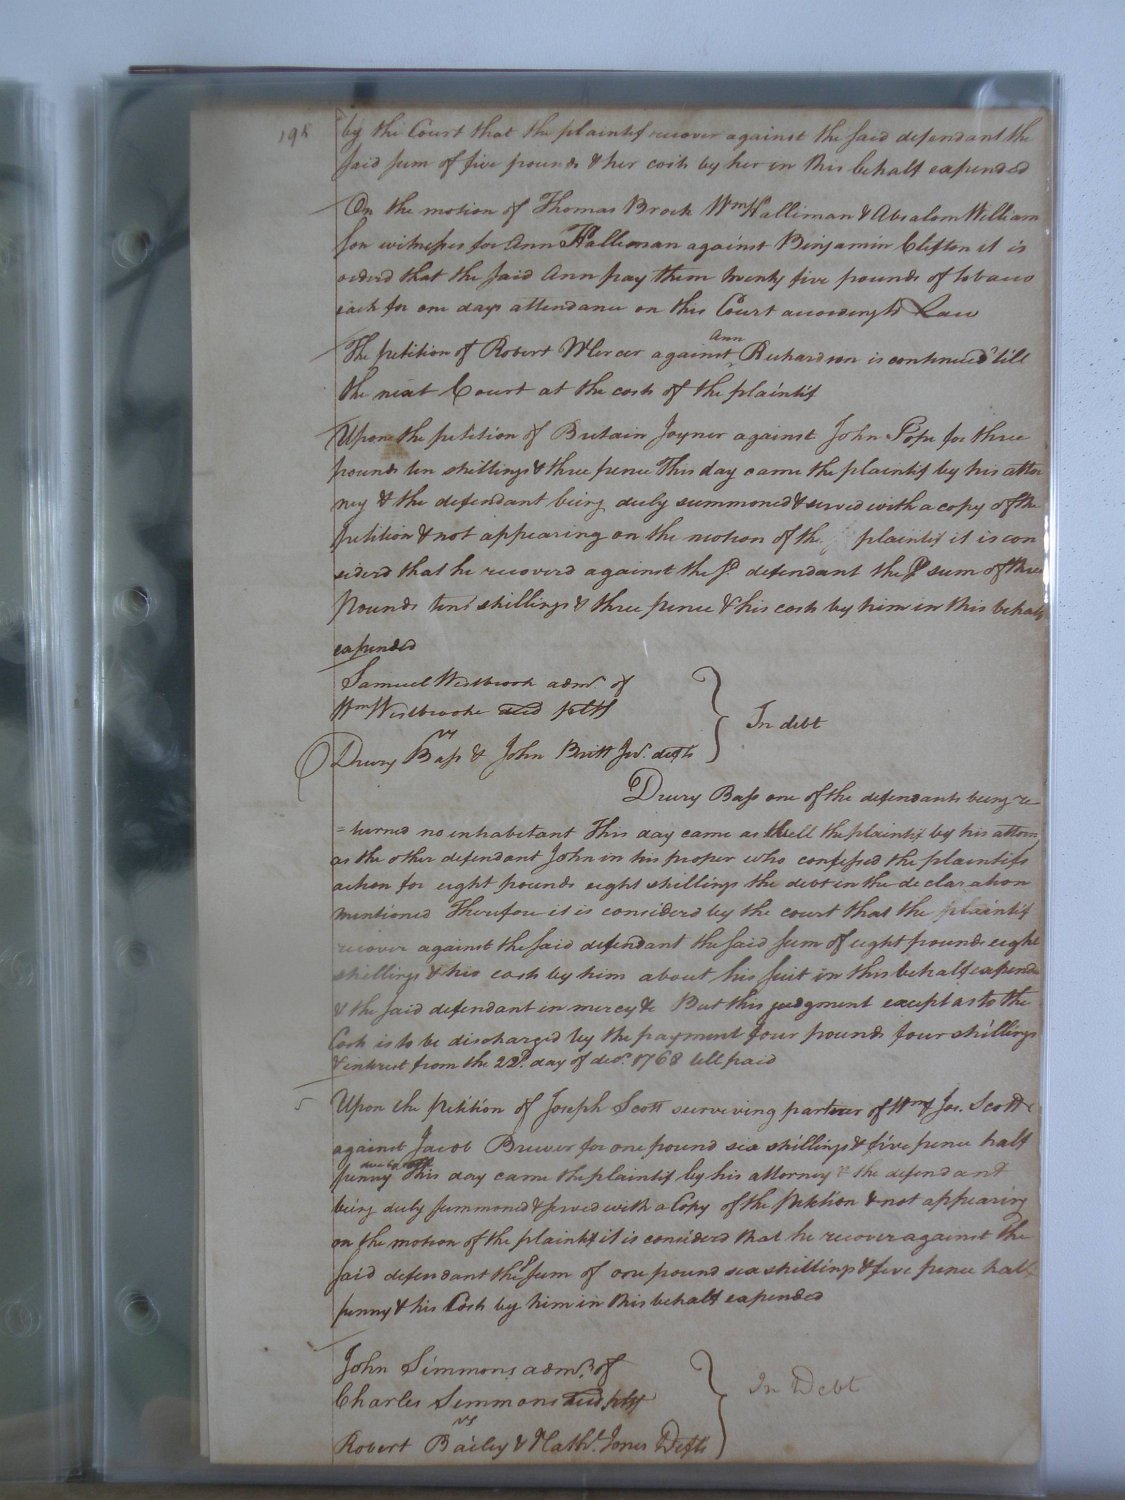 198
by the Court that the plaintif recover against the said defendant the
said sum of five pounds & her costs by her in this behalf expended
On the motion of Thomas Brock Wm Halliman & Absalom William
son witnesses for Ann Halliman against Binjamin Clifton it is
orderd that the said Ann pay them twenty five pounds of tobacco
each for one days attendance on this Court according to Law
The petition of Robert Mercer against Ann Richardson is continued till
the next Court at the costs of the plaintif
Upon the petition of Britain Joyner against John Pope for three
pounds ten shillings & three pence This day came the plaintif by his attor
ney & the defendant being duly summoned & served with a copy of the
petition & not appearing on the motion of the plaintif it is con
siderd that he recoverd against the sd. defendant the sum of three
pounds ten shillings & three pence & his costs by him in this behalf
expended
Samuel Westbrook admr. of
Wm Westbrooke decd pltf
vs
Drury Bass & John Britt Jur. defts
In debt
Drury Bass one of the defendants being re
=turned no inhabitant This day came as well the plaintif by his attorn
as the other defendant John in his proper who confessed the plaintifs
action for eight pounds eight shillings the debt in the declaration
mentioned Therefore it is considerd by the court that the plaintif
recover against the said defendant the said sum of eight pounds eight
shillings & his costs by him about his suit in this behalf expended
& the said defendant in mercy &c But this judgment except as to the
Costs is to be discharged by the payment four pounds four shillings
& interest from the 22d. day of decr. 1768 till paid
Upon the petition of Joseph Scott surviving partner of Wm & Jas. Scott
against Jacob Brewer for one pound six shillings & five pence half
penny This day came the plaintif by his attorney & the defendant
being duly summoned & served with a Copy of the petition & not appearing
on the motion of the plaintif it is considerd that he recover against the
said defendant the sd sum of one pound six shillings & five pence half
penny & his Costs by him in this behalf expended
John Simmons admr. of
Charles Simmons decd pltf
vs
Robert Bailey & Nathl. Jones Defts
In Debt